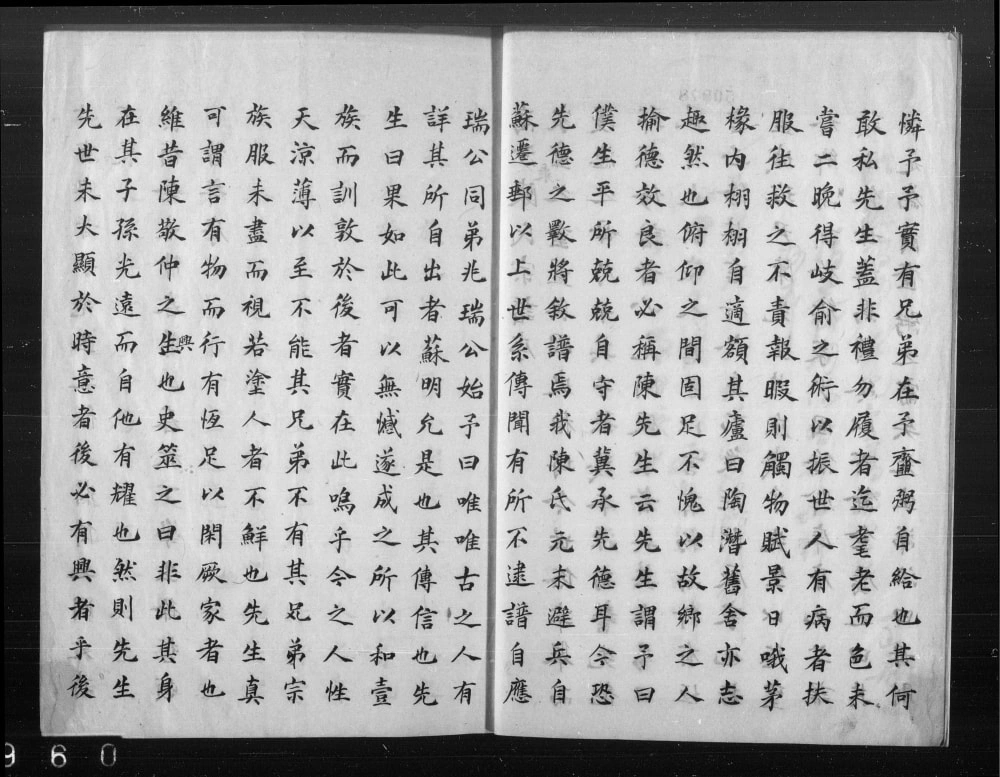 憐予予實有兄弟在予齏粥自給也其何
敢私先生蓋非禮勿履者迄耄老而色未
嘗二晚得岐俞之術以振世人有病者扶
服往救之不責報暇則觸物賦景日哦茅
椽内栩栩自適額其廬曰陶潛舊舍亦志
趣然也俯仰之間固足不愧以故鄉之人
揄德效良者必稱陳先生云先生謂予曰
僕生平所兢兢自守者冀承先德耳今恐
先德之斁將敘譜焉我陳氏元末避兵自
蘇遷郵以上世系傳聞有所不逮譜自應
瑞公同弟兆瑞公始予曰唯唯古之人有
詳其所自出者蘇明允是也其傳信也先
生曰果如此可以無憾遂成之所以和壹
族而訓敦於後者實在此嗚乎今之人性
天涼薄以至不能其兄弟不有其兄弟宗
族服未盡而視若塗人者不鮮也先生真
可謂言有物而行有恆足以閑厥家者也
維昔陳敬仲之生興也史筮之曰非此其身
在其子孫光遠而自他有耀也然則先生
先世未大顯於時意者後必有興者乎後
960